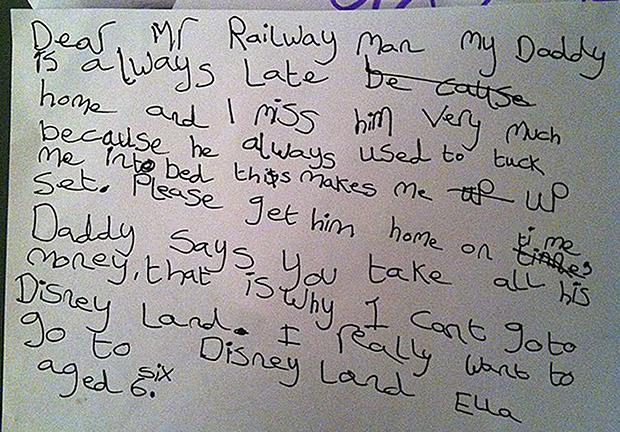 Dear Mr Railway man my Daddy
is always Late be cause
home and I miss him very much
because he always used to tuck
me into bed this makes me up UP
set. Please get him home on time
Daddy says you take all his
money, that is why I cant go to
Disney Land. I really want to
go to Disney Land Ella
aged 6. six